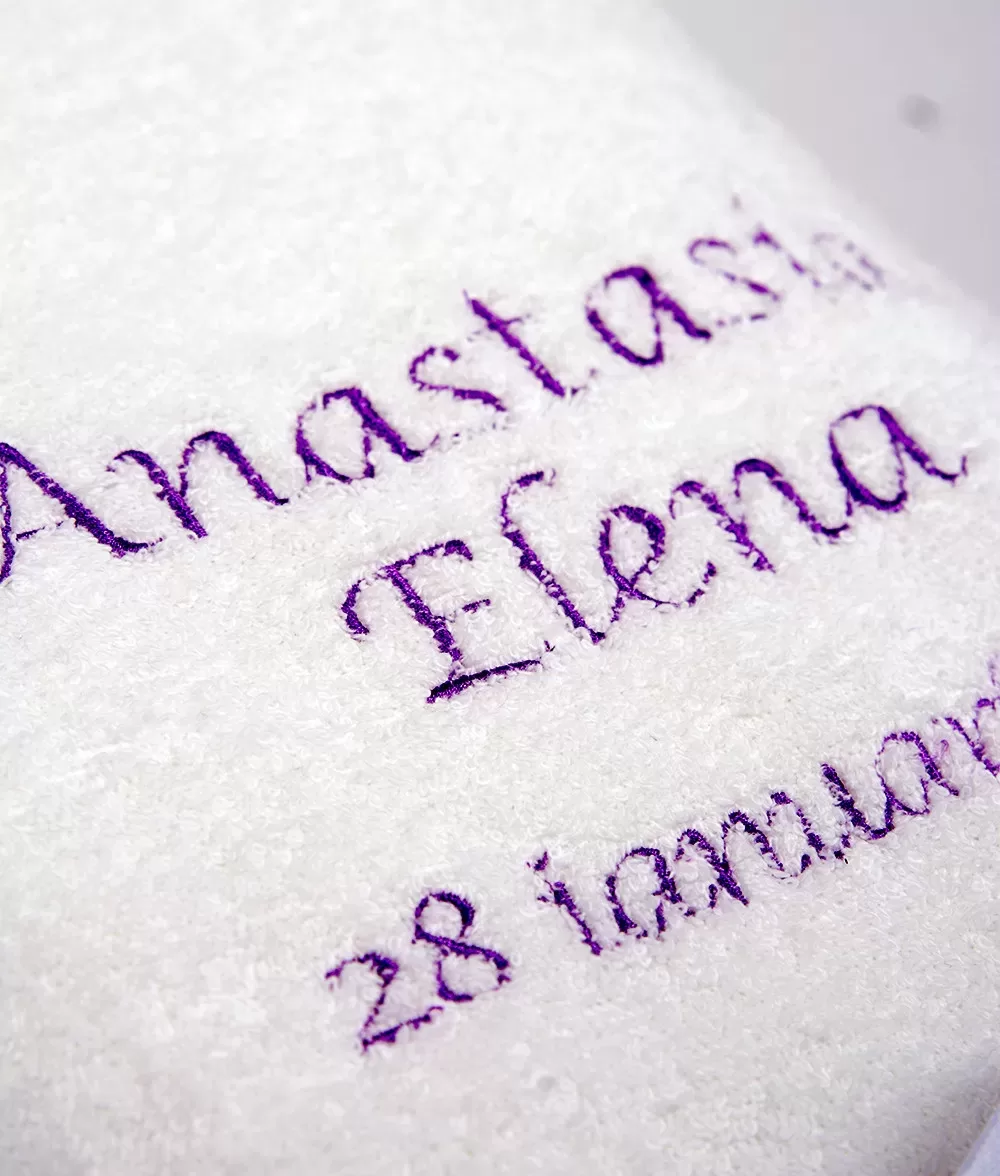 Anastasia
Elena
28 ianuar